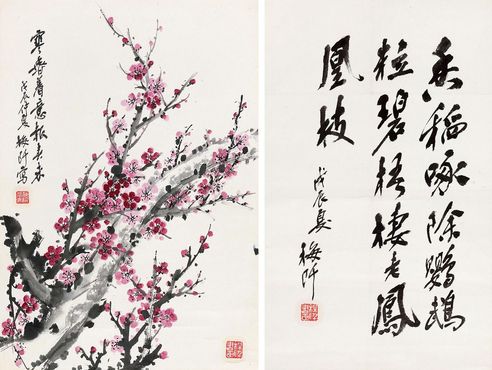 寒香着意報春来
戊辰夏梅阡寫
香稻啄除鸚鵡
粒碧梧棲老鳳
凰枝
戊辰夏
梅阡